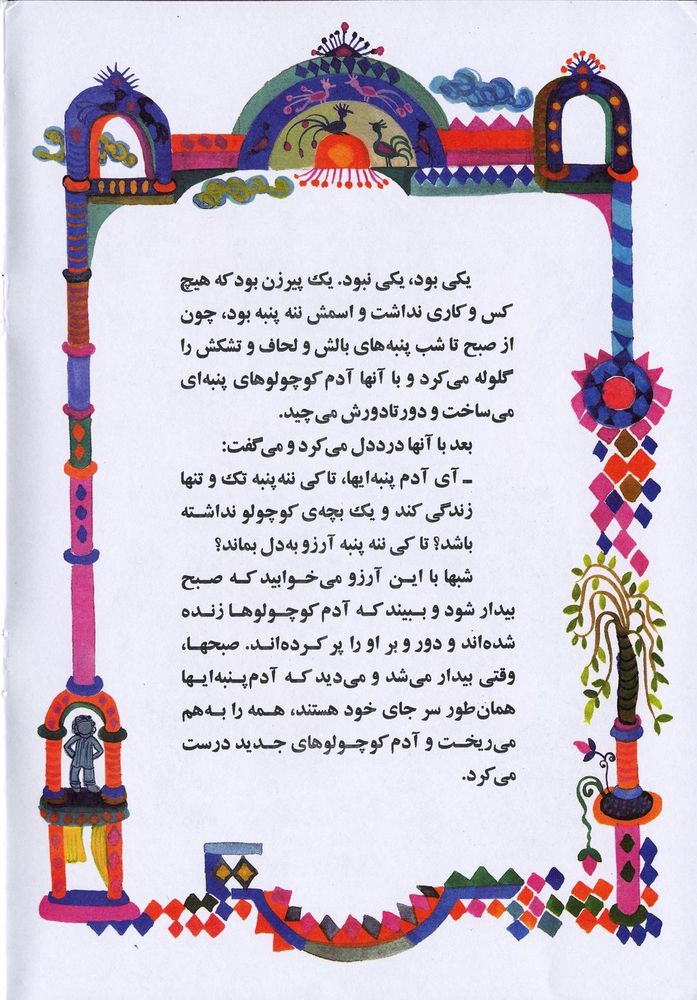 یکی بود، یکی نبود. یک پیرزن بود که هیچ
کس و کاری نداشت و اسمش ننه پنبه بود، چون
از صبح تا شب پنبه‌های بالش و لحاف و تشکش را
گلوله می‌کرد و با آنها آدم کوچولوهای پنبه‌ای
می‌ساخت و دور تا دورش می‌چید.
بعد با آنها درددل می‌کرد و می‌گفت:
ـ آی آدم پنبه‌ایها، تا کی ننه پنبه تک و تنها
زندگی کند و یک بچه‌ی کوچولو نداشته
باشد؟ تا کی ننه پنبه آرزو به‌دل بماند؟
شبها با این آرزو می‌خوابید که صبح
بیدار شود و ببیند که آدم کوچولوها زنده
شده‌اند و دور و بر او را پر کرده‌اند. صبحها،
وقتی بیدار می‌شد و می‌دید که آدم‌پنبه‌ایها
همان‌طور سر جای خود هستند، همه را به‌هم
می‌ریخت و آدم کوچولوهای جدید درست
می‌کرد.